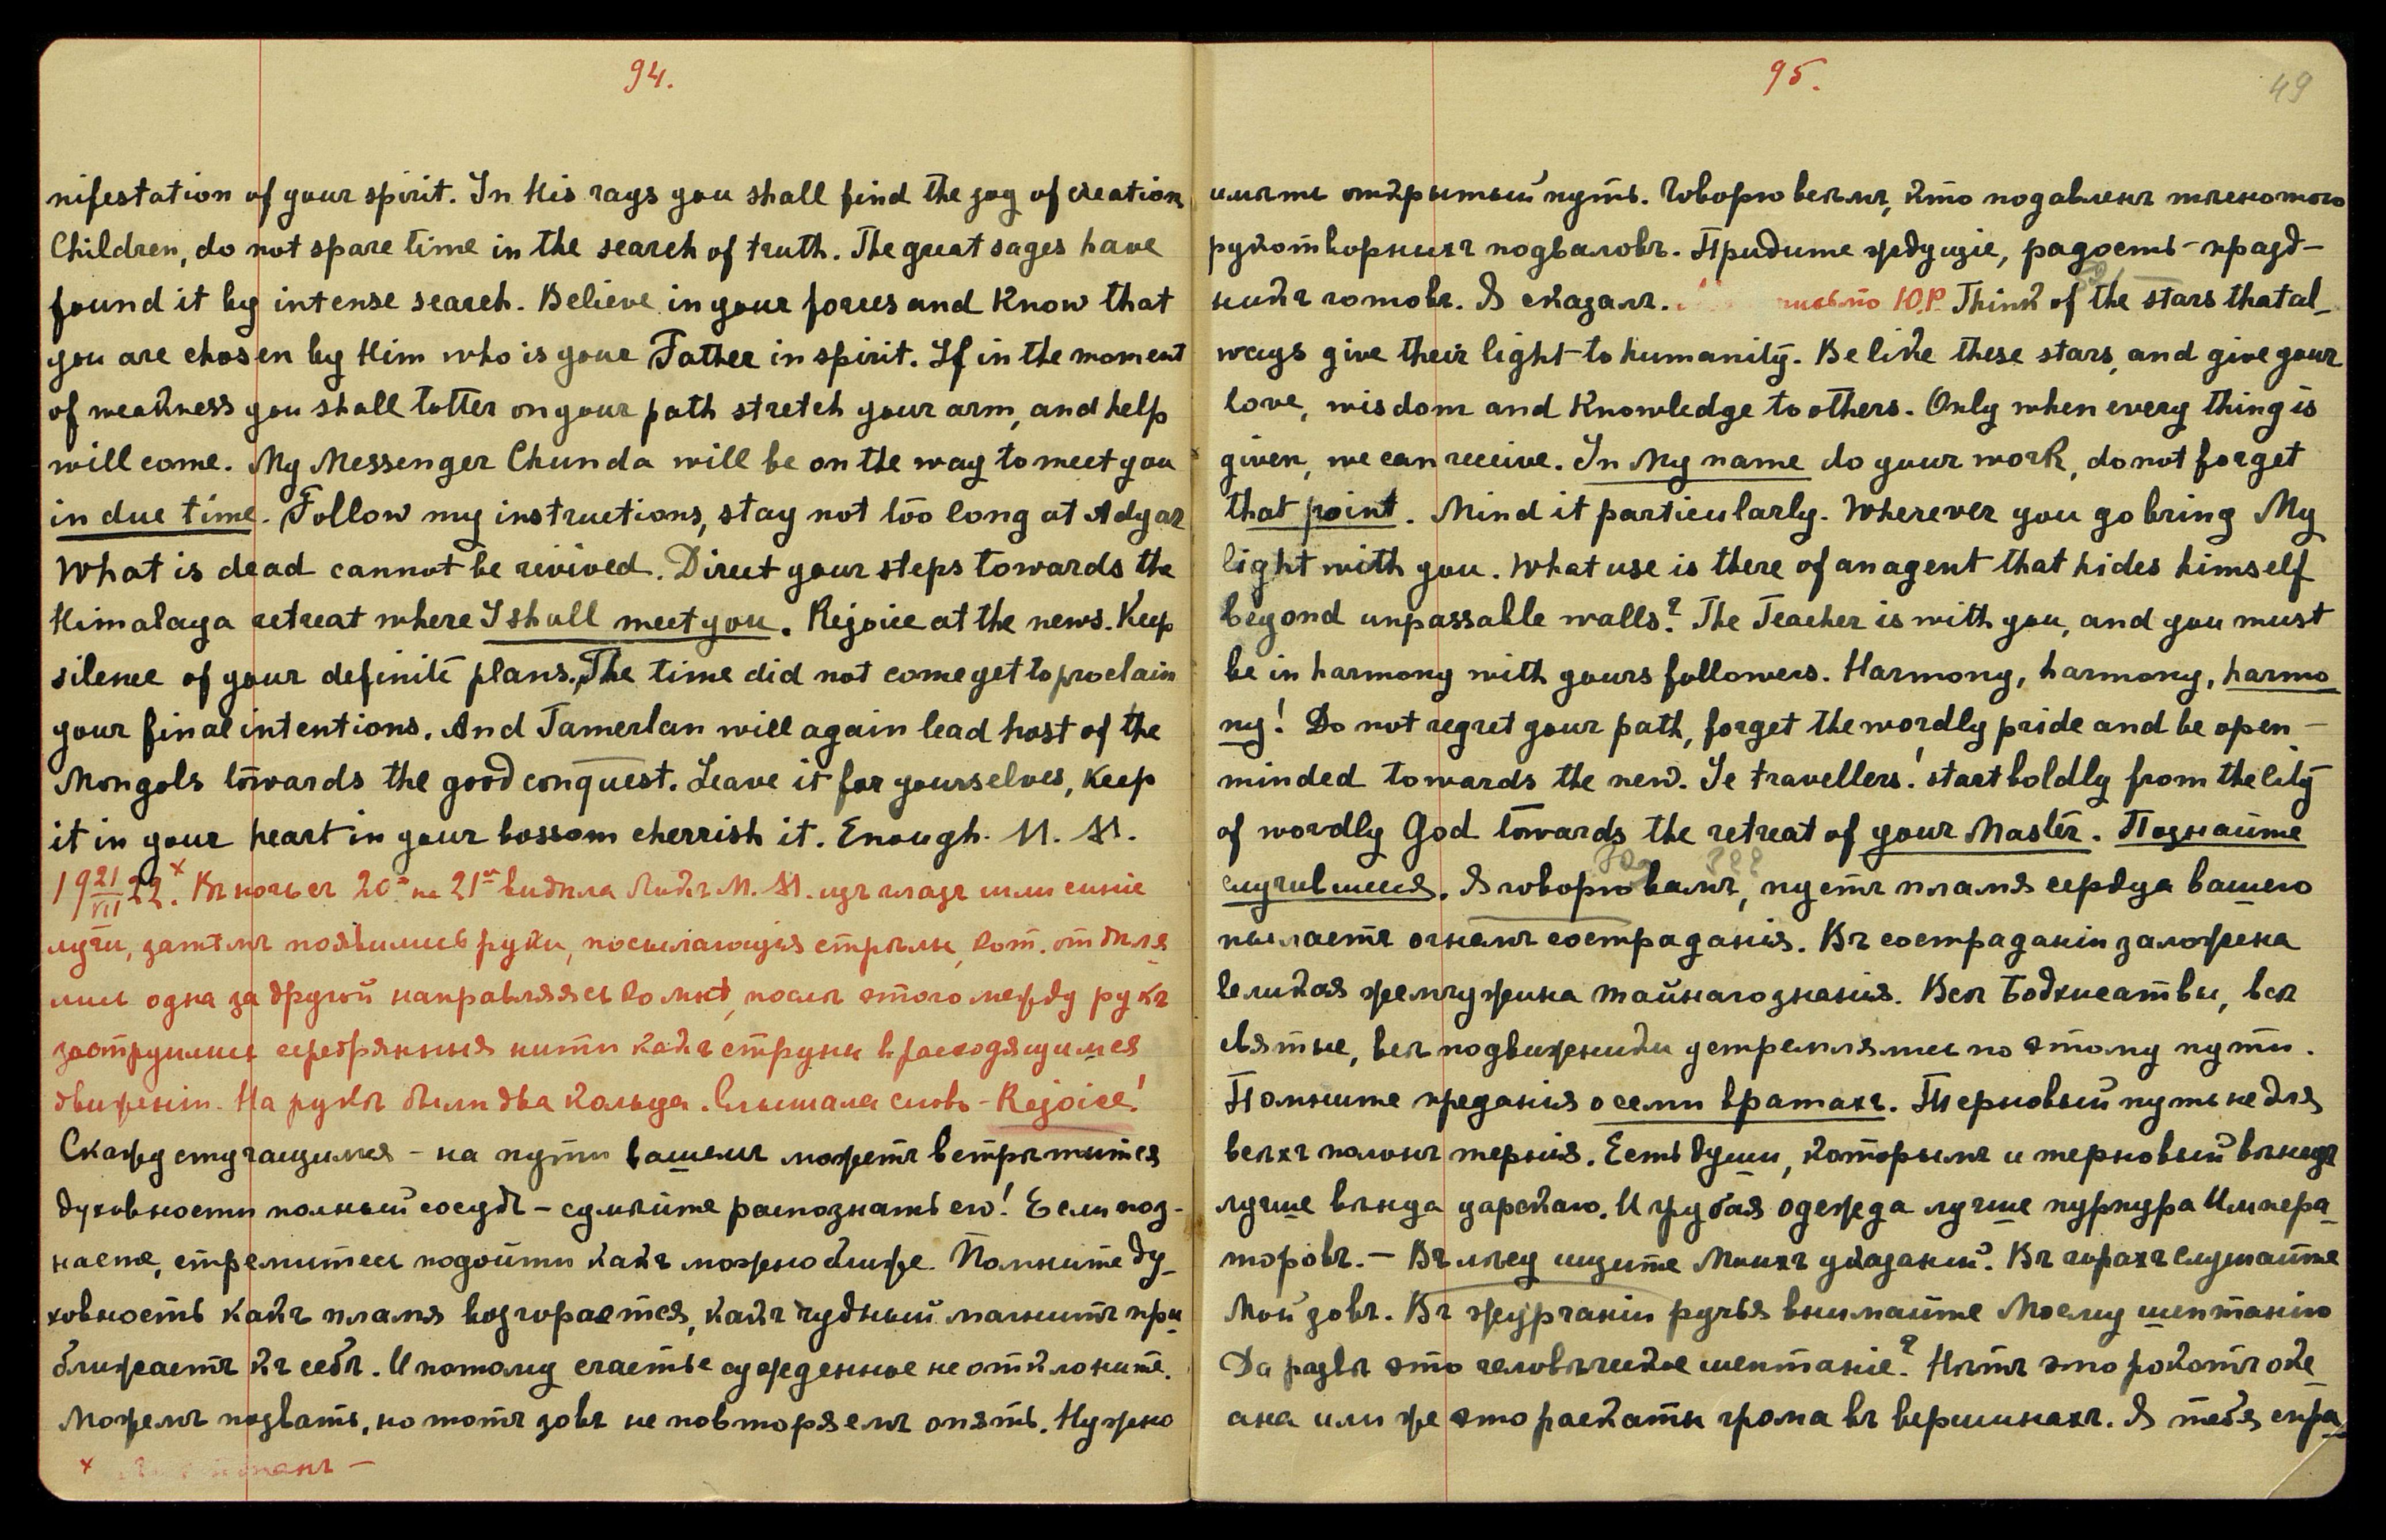 94.
nifestation of your spirit. In His rays you shall find the joy of creation
Children, do not spare time in the search of truth. The great sages have
found it by intense search. Believe in your forces and know that
you are chosen by Him who is your Father in spirit. If in the moment
of weakness you shall totter on your path stretch your arm, and help
will come. My Messenger Chunda will be on the way to meet you
in due time. Follow my instructions, stay not too long at Adyar
What is dead cannot be revived. Direct your steps towards the
Himalaya retreat where I shall meet you. Rejoice at the news. Keep
silence of your definite plans. The time did not come yet to proclaim
your final intentions. And Tamerlan will again lead host of the
Mongols towards the good conquest. Leave it for yourselves, keep
it in your heart in your bossom cherrish it. Enough. M. M.
19 21/VII 22.× Въ ночь съ 20го на 21ое видѣла Ликъ М. М. изъ глазъ шли синіе
лучи, затѣмъ появились руки, посылающія стрѣлы, кот. отдѣля
лись одна за другой направляясь ко мнѣ, послѣ этого между рукъ
заструились серебрянныя нити какъ струны въ расходящимся
движеніи. На рукѣ были два кольца. Слышала словъ - Rejoice!
Скажу стучащимся - на пути вашемъ можетъ встрѣтиться
духовности полный сосудъ - сумѣйте распознать его! Если поз-
наете, стремитесь подойти какъ можно ближе. Помните ду-
ховность какъ пламя возгорается, какъ чудный магнитъ при
ближаетъ къ себѣ. И потому счастье сужденное не отклоните.
Можемъ позвать, но тотъ зовъ не повторяемъ опять. Нужно
×
95.
49
имѣть открытый путь. Говорю всѣмъ, кто подавленъ темнотою
рукотворныхъ подваловъ. Придите ждущіе, радость - празд-
никъ готовъ. Я сказалъ. Ю.Р. Think of the stars that al-
ways give their light to humanity. Be like these stars, and give your
love, wisdom and knowledge to others. Only when every thing is
given, we can receive. In My name do your work, do not forget
that point. Mind it particularly. Wherever you go bring My
light with you. What use is there of an agent that hides himself
beyond unpassable walls? The Teacher is with you, and you must
be in harmony with yours followers. Harmony, harmony, harmo
ny! Do not regret your path, forget the wordly pride and be open -
minded towards the new. Ye travellers! start boldly from the city
of wordly God towards the retreat of your Master. Познайте
случившееся. Я говорю вамъ, пусть пламя сердца вашего
пылаетъ огнемъ состраданія. Въ состраданіи заложена
великая жемчужина тайнаго знанія. Всѣ Бодхисатвы, всѣ
святые, всѣ подвижники устремлялись по этому пути.
Помните преданія о семи вратахъ. Терновый путь не для
всѣхъ полонъ тернія. Есть души, которымъ и терновый вѣнецъ
лучше вѣнца царскаго. И грубая одежда лучше пурпура Импера-
торовъ. - Въ лѣсу ищите Моихъ указаній. Въ горахъ слушайте
Мой зовъ. Въ журчаніи ручья внимайте Моему шептанію
Да развѣ это человѣческое шептаніе? Нѣтъ это рокотъ оке
ана или же это раскаты грома въ вершинахъ. Я тебя спра